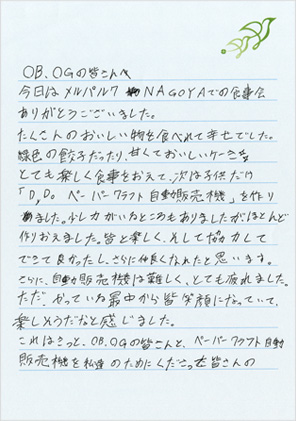 OB、OGの皆さんへ
今日はメルパルク NAGOYAでの食事会
ありがとうございました。
たくさんのおいしい物を食べれて幸せでした。
緑色の餃子だったり、甘くておいしいケーキ
とても楽しく食事をおえて、次は子供だけ
「D,Do ペーパークラフト自動販売機」を作り
ました。少し力がいるところもありましたがほとんど
作りおえました。皆と楽しく、そして協力して
できて良かったし、さらに仲良くなれたと思います。
さらに、自動販売機は難しく、とても疲れました。
ただ、やっている最中から皆笑顔になっていて、
楽しそうだなと感じました。
これはきっと、OB、OGの皆さんと、ペーパークラフト自動
販売機を私達のためにくださった皆さんの